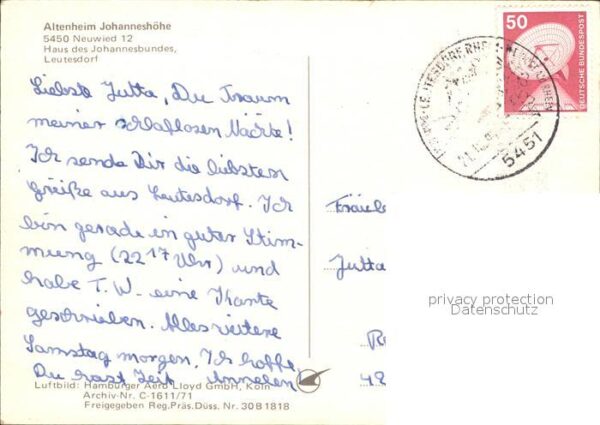 Altenheim Johanneshöhe
5450 Neuwied 12
Haus des Johannesbundes,
Leutesdorf
50
DEUTSCHE BUNDESPOST
5451
Liebste Jutta, Du Traum
meiner schlaflosen Nächte!
Ich sende Dir die liebsten
Grüße aus Leutesdorf. Ich
bin gerade in guter Stim-
mung (22 17 Uhr) und
habe T. W. eine Karte
geschrieben. Alles weitere
Samstag morgen. Ich hoffe,
Du hast Zeit
Jutta
privacy protection
Datenschutz
Luftbild: Hamburger Aero Lloyd GmbH, Köln
Archiv-Nr. C-1611/71
Freigegeben Reg.Präs.Düss. Nr. 30 B 1818